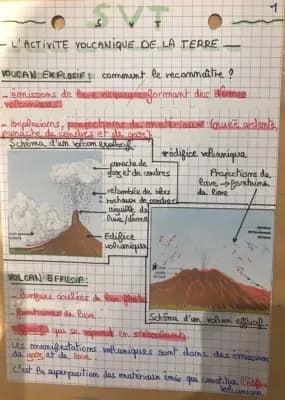 SVT
1
S V T
- L'ACTIVITÉ VOLCANIQUE DE LA TERRE -
VOLCAN EXPLOSIF: comment le reconnaître ?
- émissions de lave visqueuse formant des dômes
volcaniques
- explosions, projections de matériaux (nuée ardente,
panache de cendres et de gaz)
Schéma d'un volcan explosif
panache de
gaz et de cendres
retombées de blocs
rocheux de cendres
aiguille de
lave/dôme
Edifice
volcanique
édifice volcanique
Projections de
lave → fontaine
de lave
Schéma d'un volcan effusif
VOLCAN EFFUSIF:
- Longues coulées de lave fluide
- Fontaines de lave
qui se répand en s'écoulant.
Les manifestations volcaniques sont donc des émissions
de gaz et de lave.
C'est la superposition des matériaux émis qui constitue l'édifice
volcanique